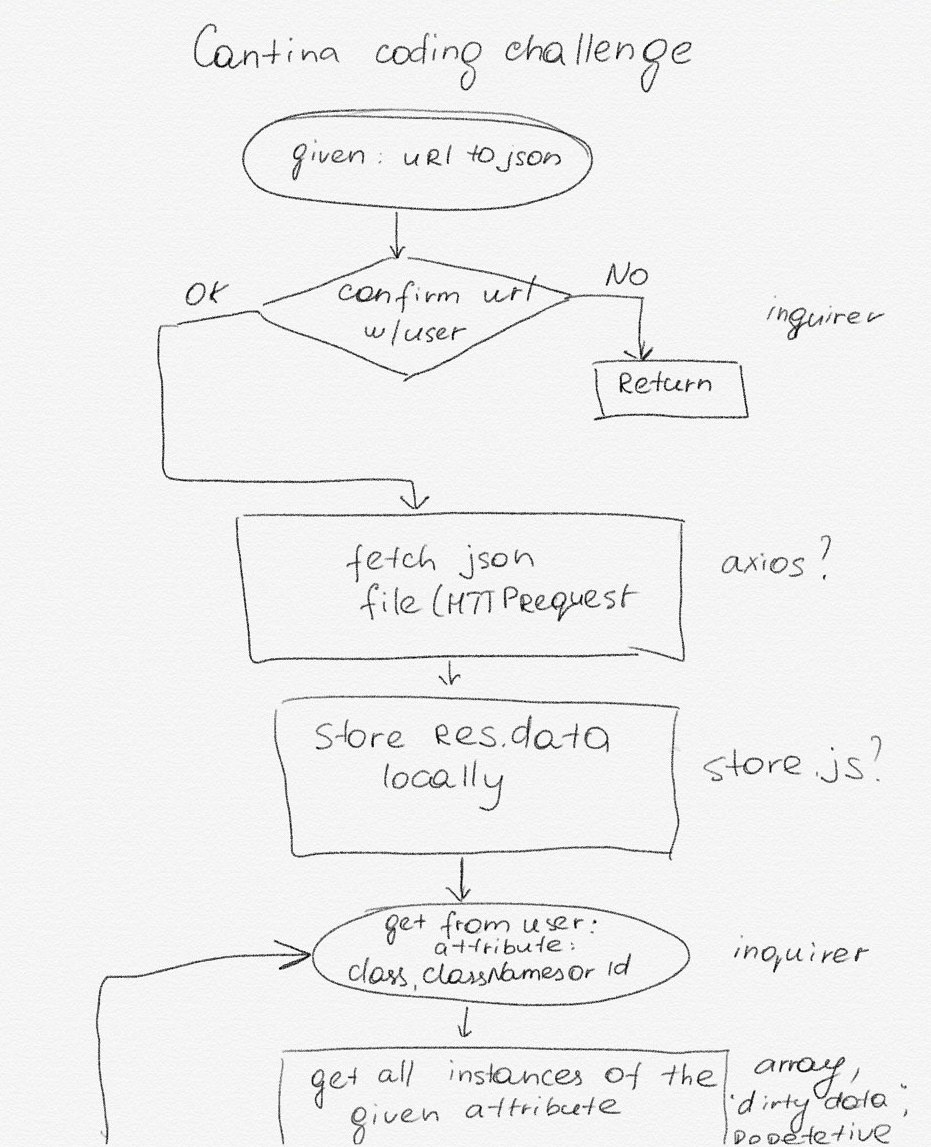 Cantina coding challenge
given: url to json
OK
confirm url
w/user
NO
inquirer
Return
fetch json
file (HTTP request
axios?
store res.data
locally
store.js?
get from user:
attribute:
class, classNames or id
inquirer
get all instances of the
given attribute
array,
"dirty data",